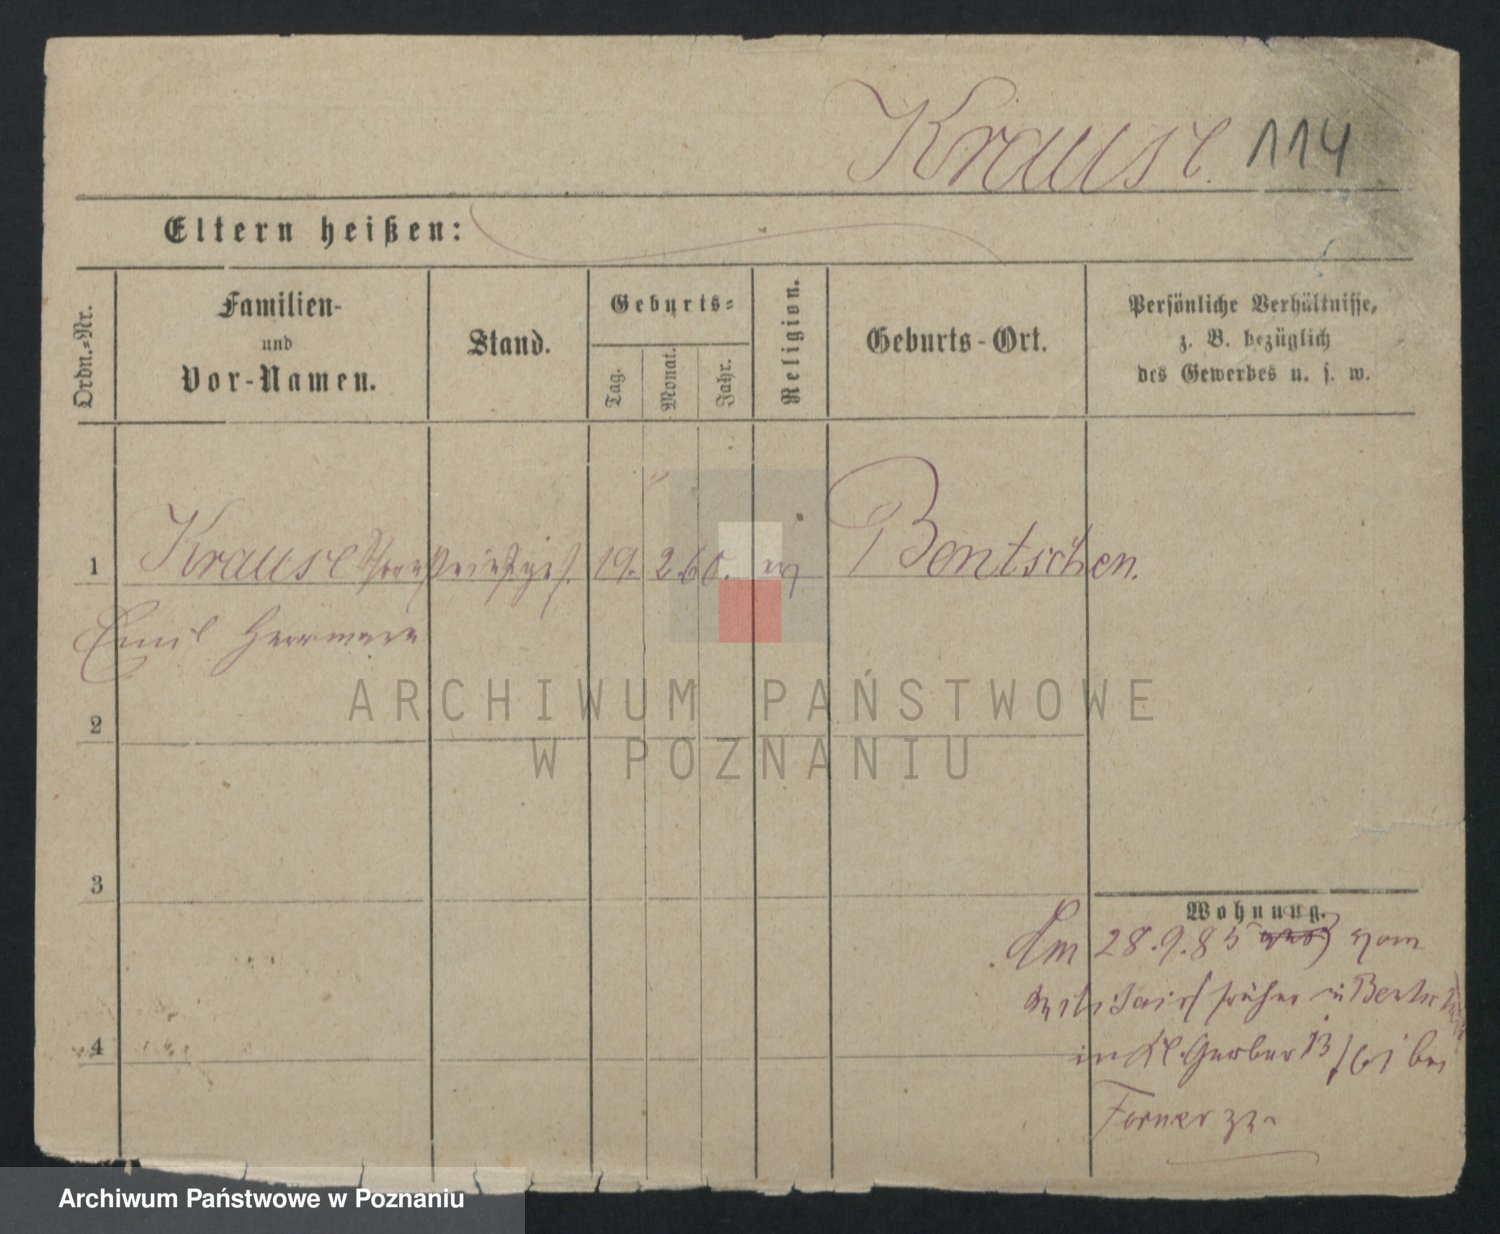 Krause. 114
Eltern heißen:
Ordn.-Nr.
Familien-
und
Vor-Namen.
Stand.
Geburts-
Tag.
Monat.
Jahr.
Religion.
Geburts-Ort.
Persönliche Verhältnisse,
z. B. bezüglich
des Gewerbes u. s. w.
1 Krause 19. 2. 60. ev Bentschen.
Emil Herrmann
2
ARCHIWUM PAŃSTWOWE
W POZNANIU
3
Wohnung.
Am 28.9.85 vom
früher in
4
in Kl. Gerber 13 bei
Forner
Archiwum Państwowe w Poznaniu